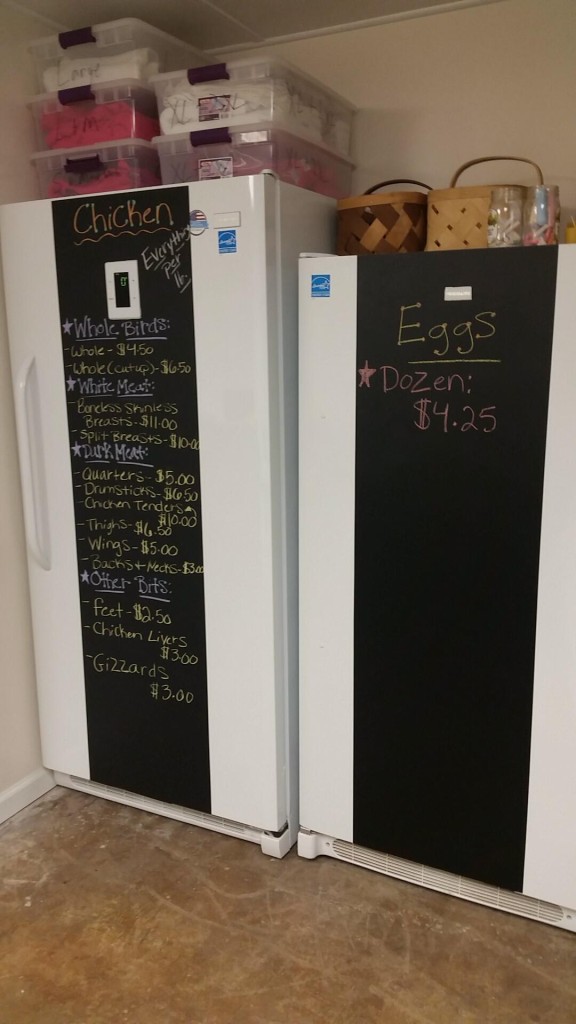 Large
Chicken
Everything
Per
lb.
★Whole Birds:
-Whole - $4.50
-Whole (cut up) - $6.50
★White Meat:
-Boneless Skinless
Breasts - $11.00
-Split Breasts - $10.00
★Dark Meat:
-Quarters - $5.00
-Drumsticks - $6.50
-Chicken Tenders
$10.00
-Thighs - $6.50
-Wings - $5.00
-Backs + Necks - $3.00
★Other Bits:
-Feet - $2.50
-Chicken Livers
$3.00
-Gizzards
$3.00
Eggs
★Dozen:
$4.25